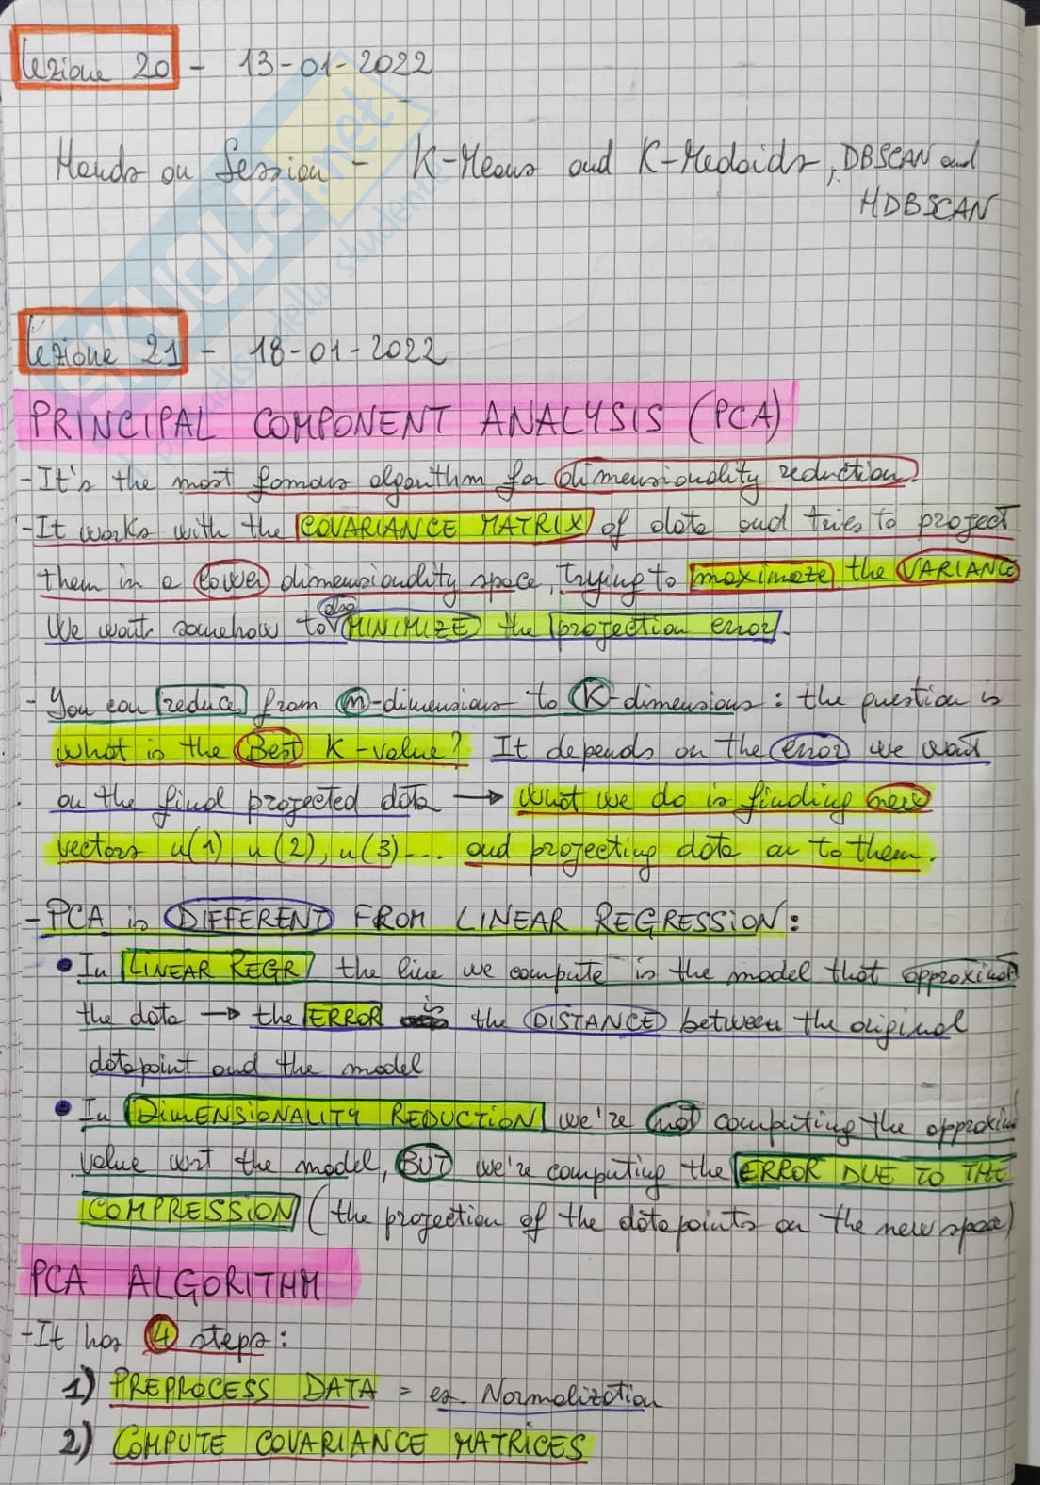 Lezione 20 - 13-01-2022
Hands on Session - K-Means and K-Medoids, DBSCAN and
HDBSCAN
SKUOLA.net
Lezione 21 - 18-01-2022
PRINCIPAL COMPONENT ANALYSIS (PCA)
- It's the most famous algorithm for dimensionality reduction.
- It works with the COVARIANCE MATRIX of data and tries to project
them in a lower dimensionality space, trying to maximize the VARIANCE
also
We want somehow to MINIMIZE the projection error.
- You can reduce from n-dimensions to K-dimensions: the question is
what is the Best K-value? It depends on the error we want
on the final projected data → what we do is finding new
vectors u(1), u(2), u(3)... and projecting data on to them.
- PCA is DIFFERENT FROM LINEAR REGRESSION:
• In LINEAR REGR the line we compute is the model that approximat
the data → the ERROR is the DISTANCE between the original
datapoint and the model
• In DIMENSIONALITY REDUCTION we're not computing the approxim
value wrt the model, BUT we're computing the ERROR DUE TO THE
COMPRESSION (the projection of the datapoints on the new space)
PCA ALGORITHM
- It has 4 steps:
1) PREPROCESS DATA = es. Normalization
2) COMPUTE COVARIANCE MATRICES